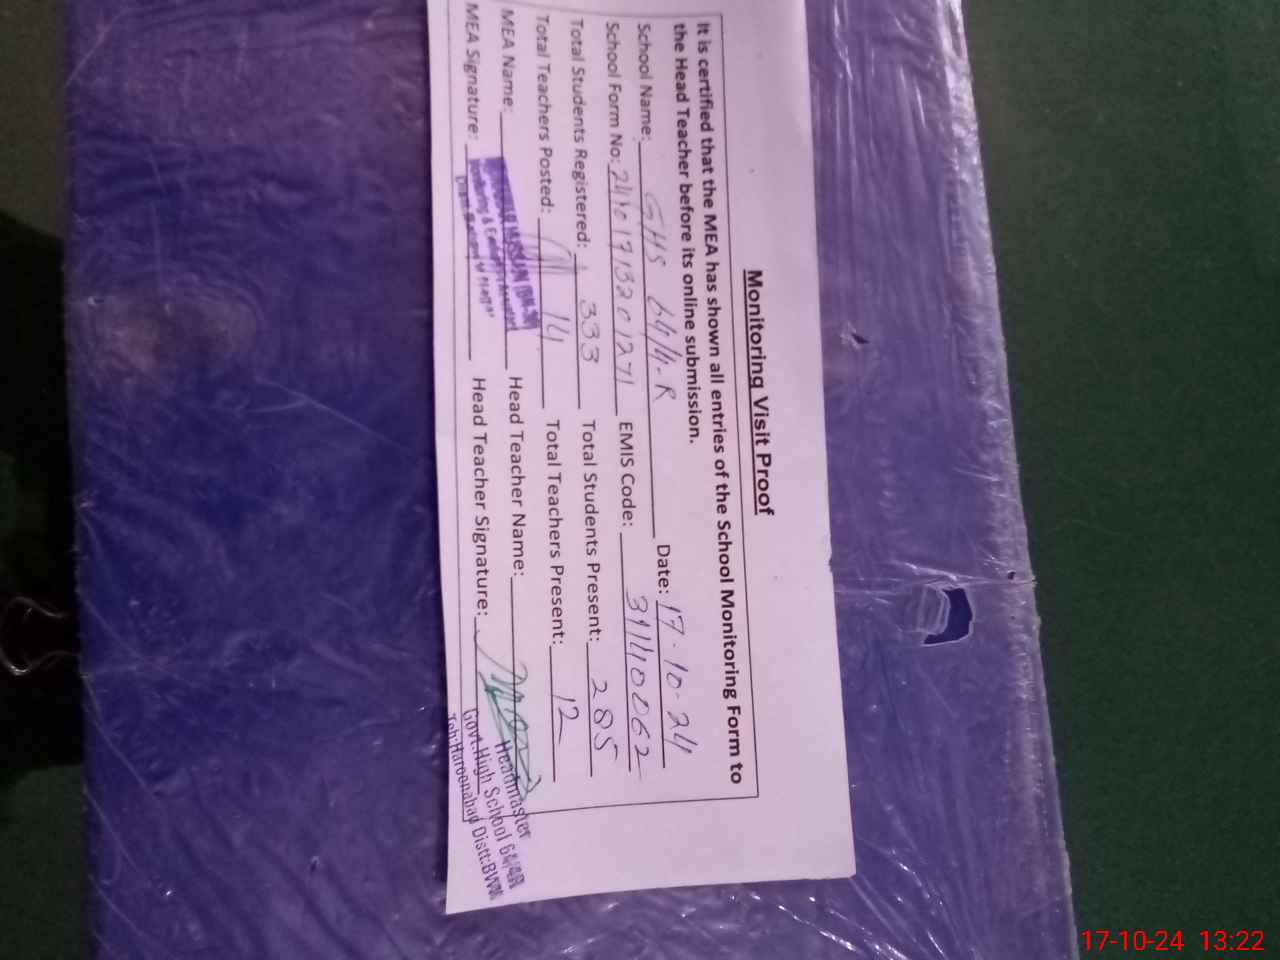 Monitoring Visit Proof
It is certified that the MEA has shown all entries of the School Monitoring Form to
the Head Teacher before its online submission.
School Name: GHS 64/4-R Date: 17-10-24
School Form No: EMIS Code: 31140062
Total Students Registered: 333 Total Students Present: 285
Total Teachers Posted: 14 Total Teachers Present: 12
MEA Name: Head Teacher Name:
MEA Signature: Head Teacher Signature:
HUSSAIN
Monitoring &
Headmaster
Govt. High School 64/4R
Teh: Haroonabad Distt: BWN
17-10-24 13:22